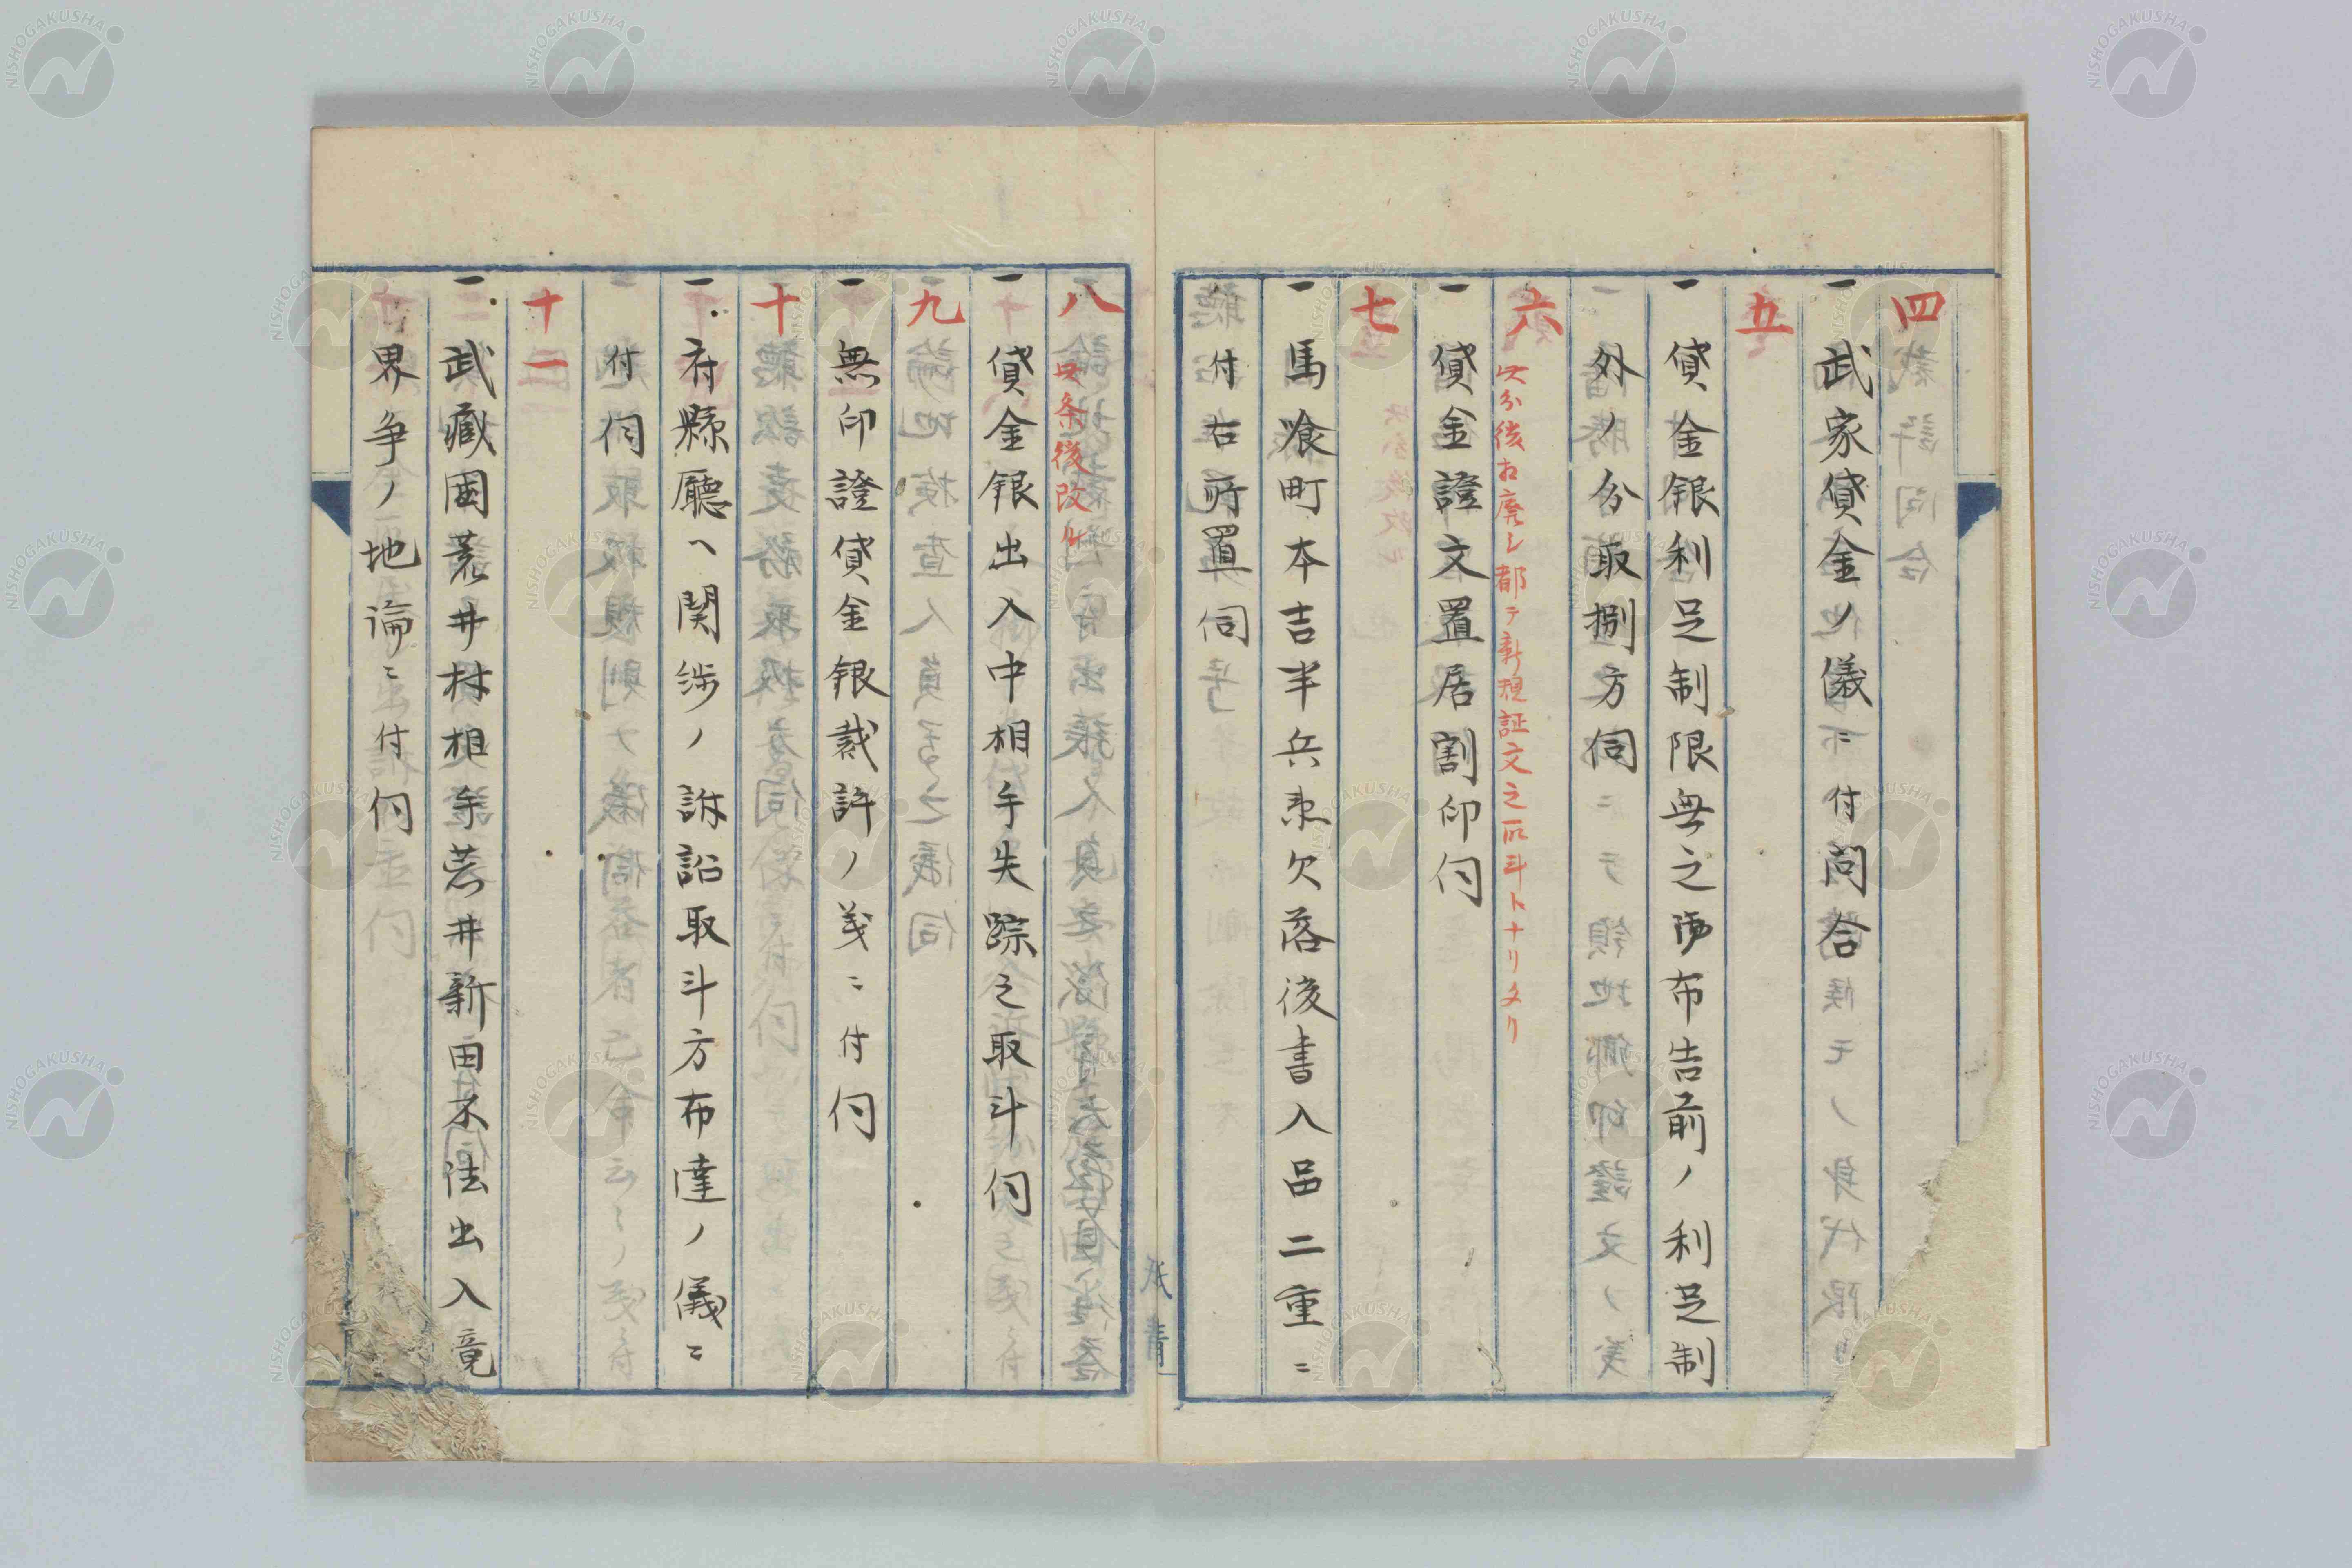 四
一 武家貸金ノ儀ニ付問合
五
一 貸金銀利足制限無之御布告前ノ利足制
外ノ分取捌方伺
六 此分後相廃シ都テ新規証文之取斗トナリタリ
一 貸金證文置居割印伺
七
一 馬喰町本吉半兵衛欠落後書入品二重ニ
付右所置伺
八 此条後改ル
一 貸金銀出入中相手失踪之取斗伺
九
一 無印證貸金銀裁許ノ義ニ付伺
十
一 府縣廳ヘ関渉ノ訴訟取斗方布達ノ儀ニ
付伺
十一
一 武藏国荒井村相手荒井新田不法出入竟
界争ノ地論ニ付伺
NISHOGAKUSHA